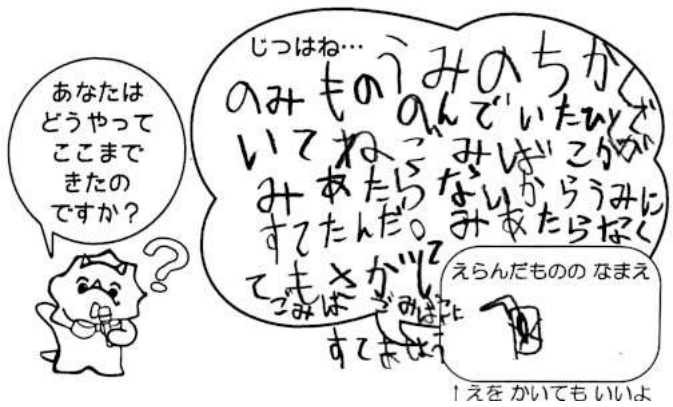 あなたは
どうやって
ここまで
きたの
ですか?
じつはね…
うみのちかくで
のみものをのんでいたひとが
いてねごみばこが
みあたらないからうみに
すてたんだ。みあたらなく
てもさがして
ごみは ごみばこに
すてましょう
えらんだものの なまえ
↑えを かいても いいよ